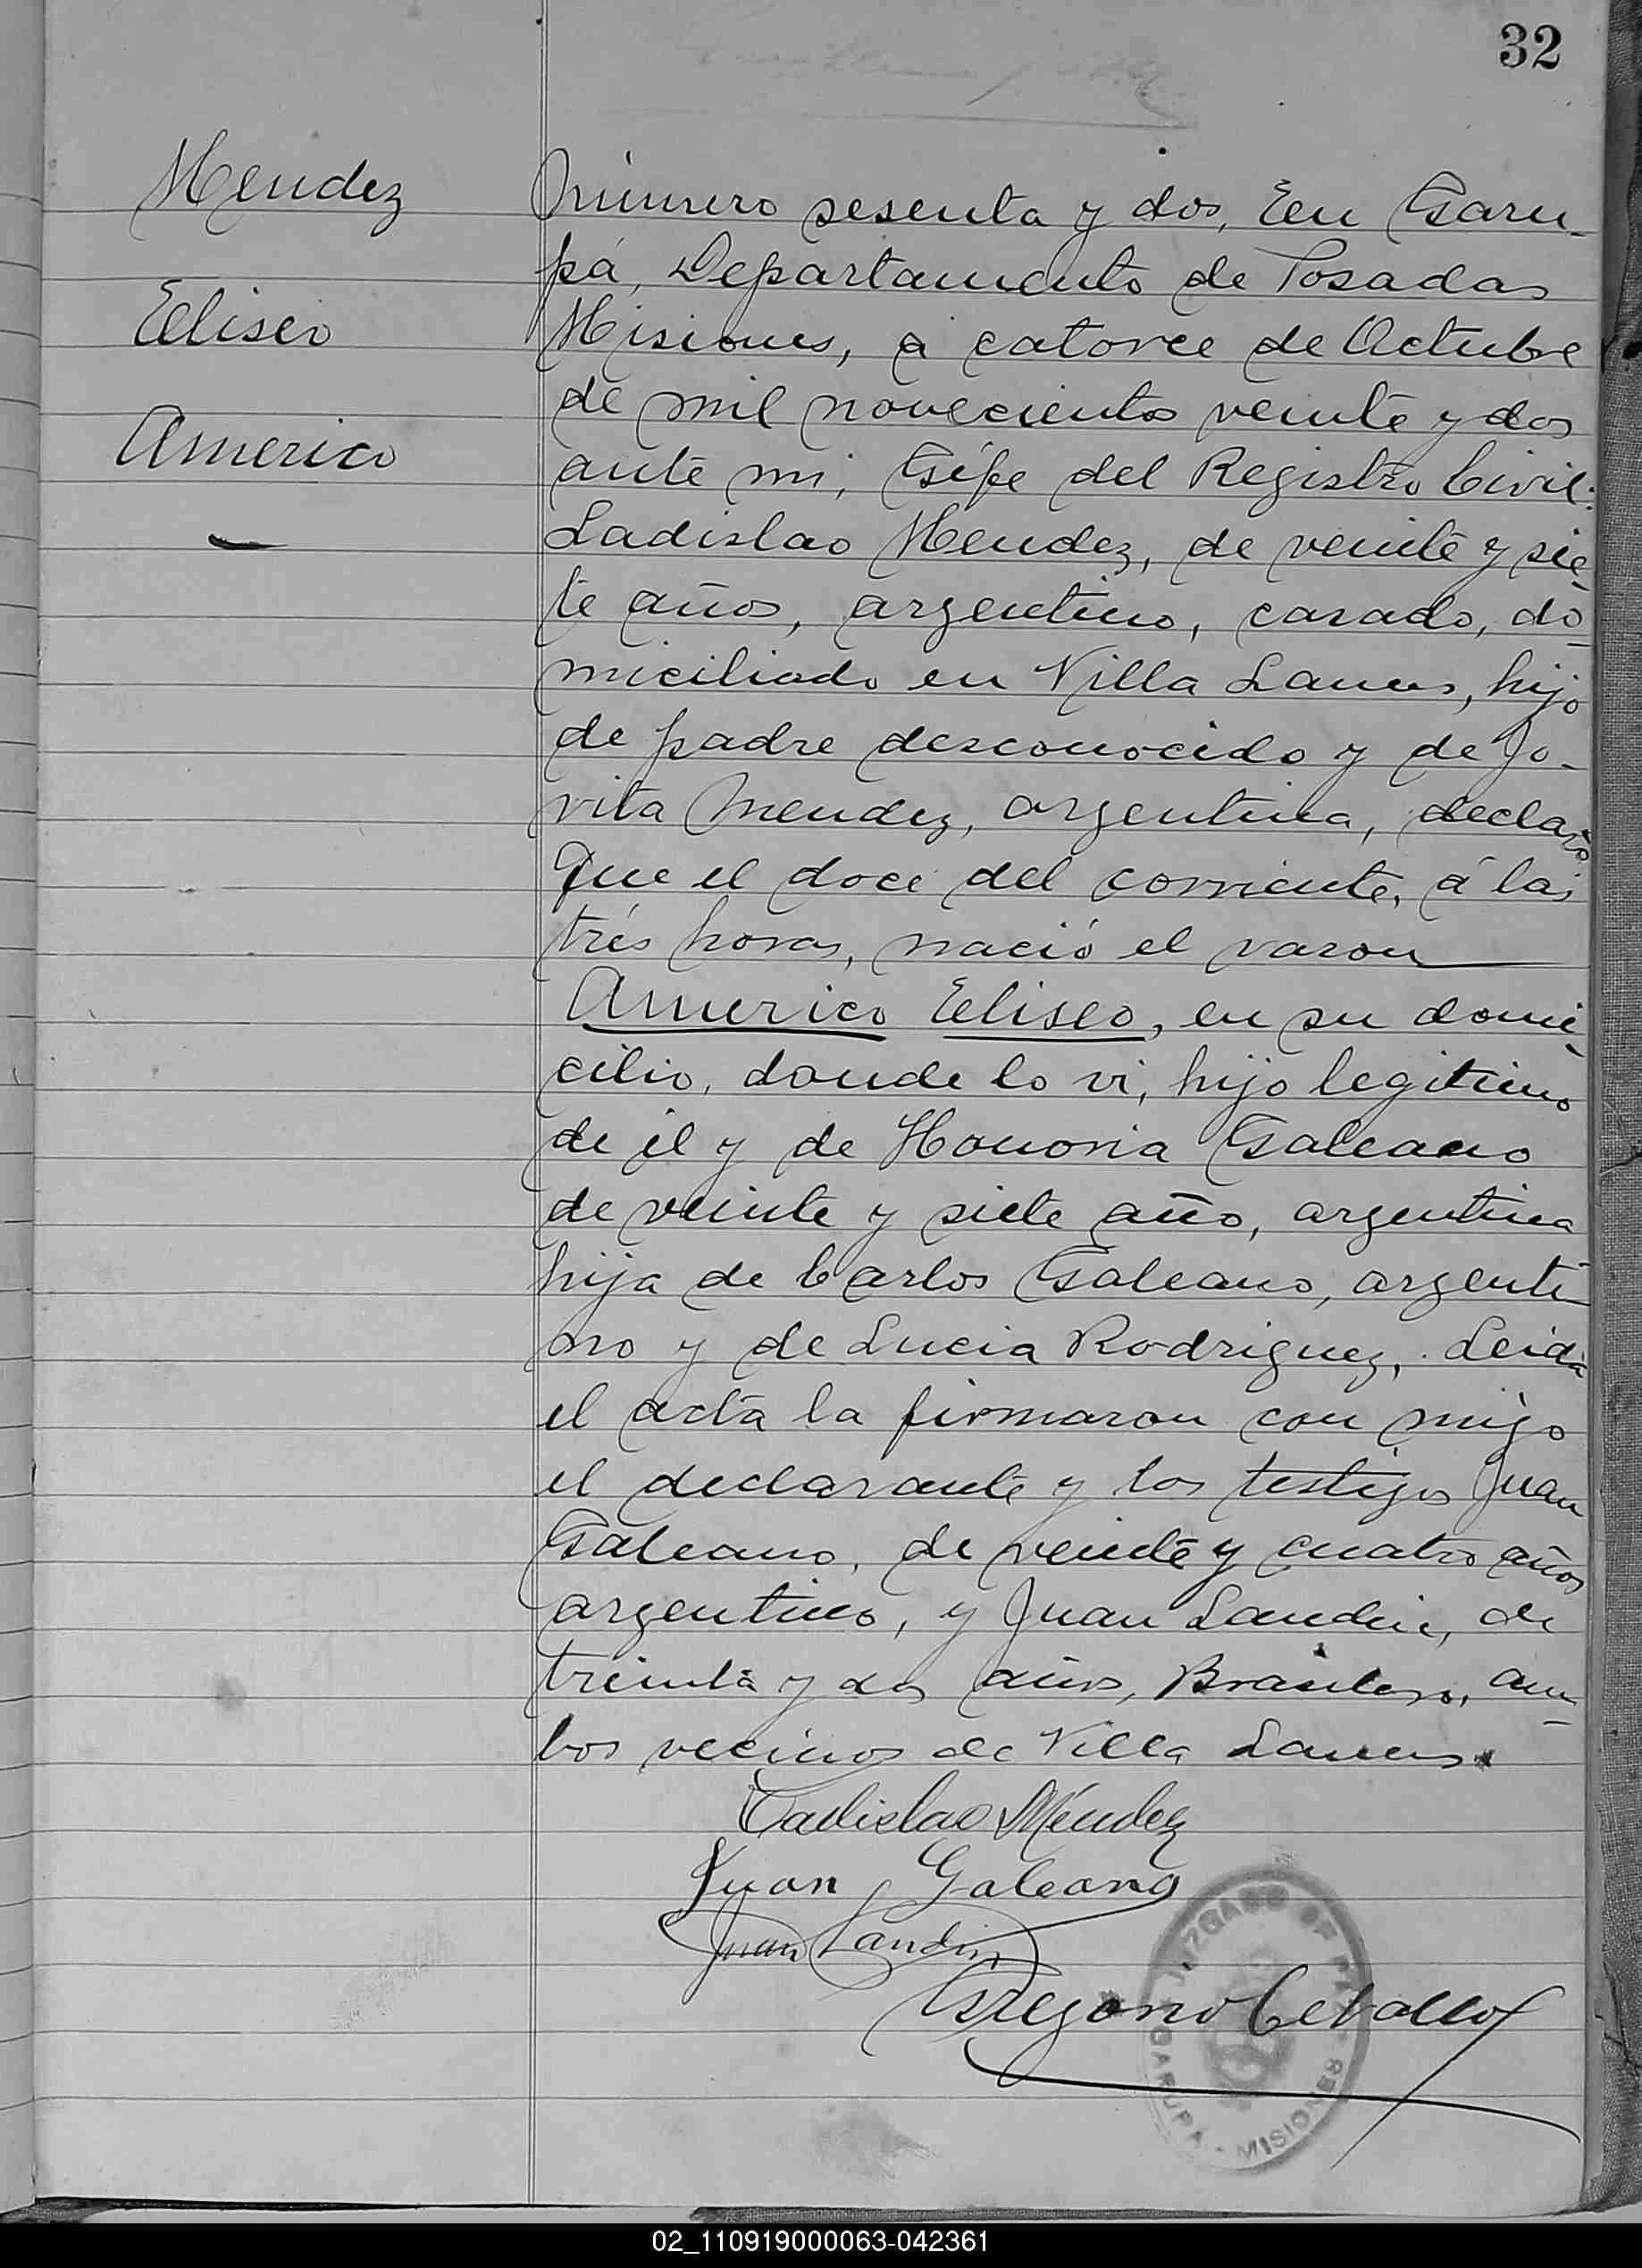 32
Mendez
Eliseo
Americo
Número sesenta y dos, En Garu-
pá, Departamento de Posadas
Misiones, a catorce de Octubre
de mil novecientos veinte y dos
ante mi, Géfe del Registro Civil:
Ladislao Mendez, de veinte y sie-
te años, argentino, casado, do-
miciliado en Villa Lanus, hijo
de padre desconocido y de Jo-
vita Mendez, argentina, declaró
Que el doce del corriente, á las
trés horas, nació el varon
Americo Eliseo, en su domi-
cilio, donde lo vi, hijo legitimo
de él y de Honoria Galeano
de veinte y siete año, argentina
hija de Carlos Galeano, argenti-
no y de Lucia Rodriguez, Leida
el acta la firmaron con migo
el declarante y los testigos Juan
Galeano, de veinte y cuatro años
argentino, y Juan Landin, de
treinta y dos años, Brasilero, am-
bos vecinos de Villa Lanus.
Ladislao Méndez
Juan Galeano
Juan Landin
Gregorio Ceballos
JUZGADO DE PAZ
GARUPA - MISIONES
02_110919000063-042361